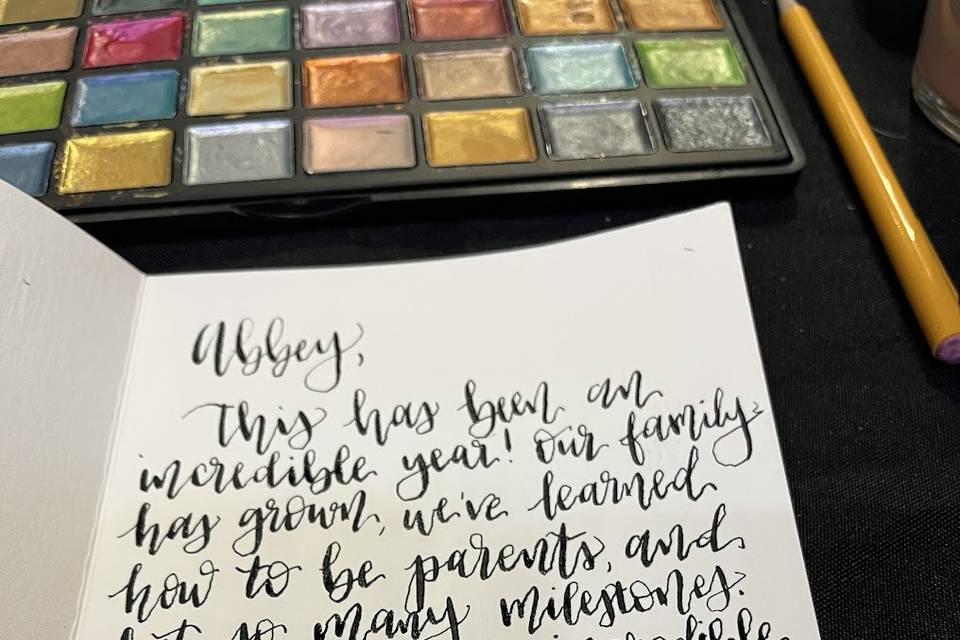 Abbey,
This has been an
incredible year! Our family
has grown, we've learned
how to be parents, and
hit so many milestones.
incredible